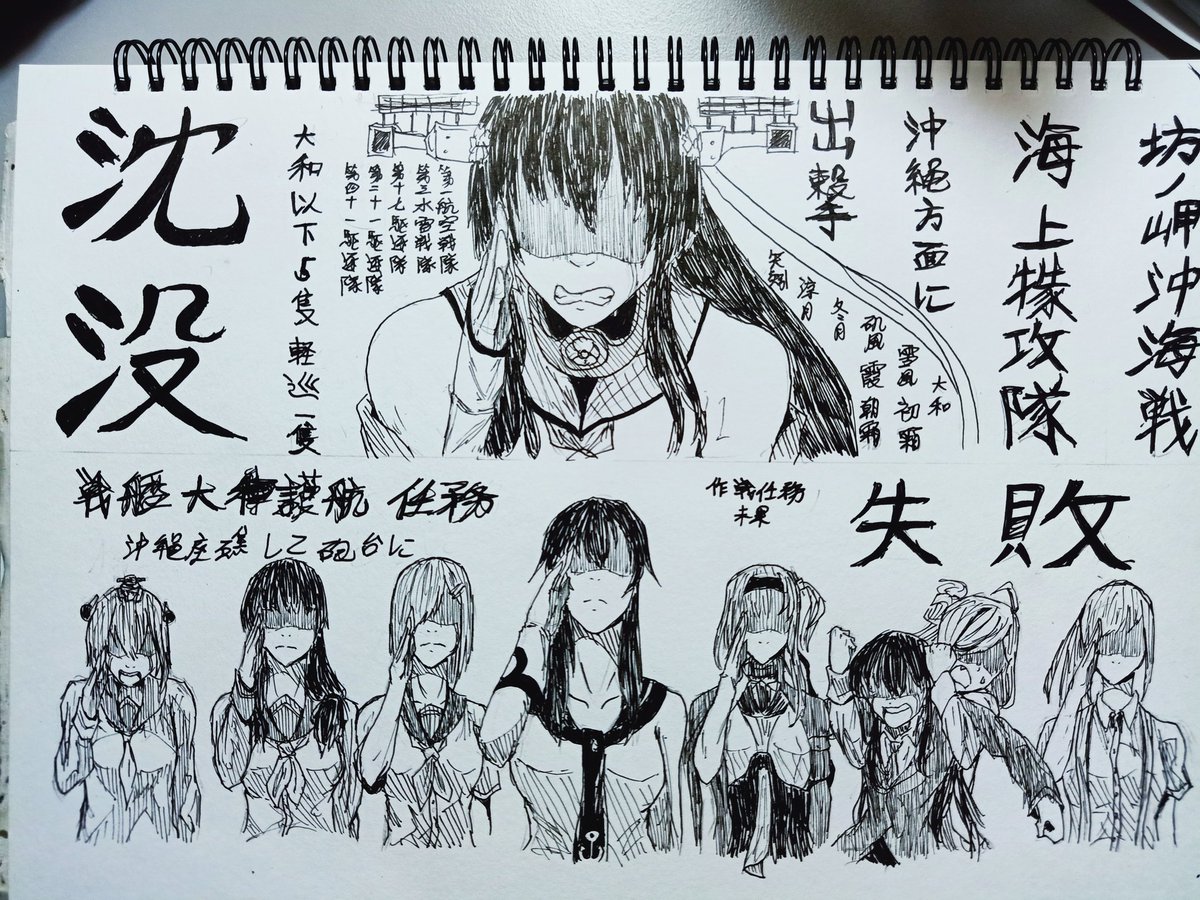 坊ノ岬沖海戦
海上特攻隊
沖縄方面に
出撃
大和
雪風 初霜
磯風 霞 朝霜
冬月
涼月
矢矧
第一航空戦隊
第二水雷戦隊
第十七駆逐隊
第二十一駆逐隊
第四十一駆逐隊
大和以下5隻軽巡一隻
沈没
失敗
作戦任務
未果
戦艦大和護航 任務
沖縄座礁して砲台に